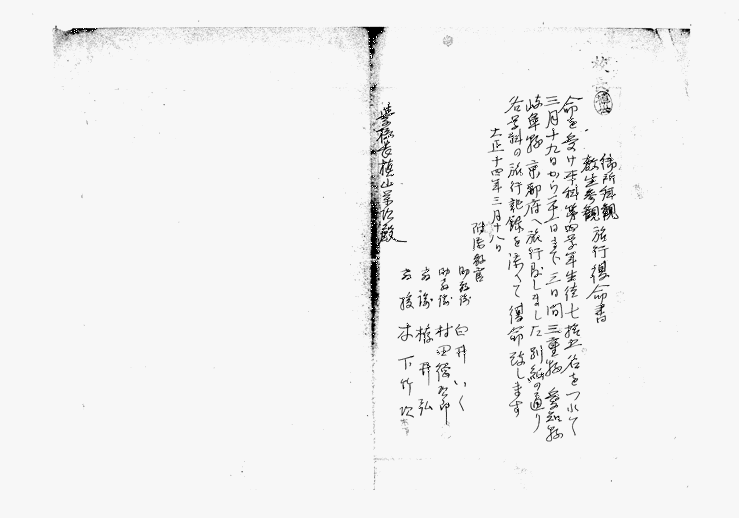 御所拝観
教生参観 旅行復命書
命を受け本科第四学年生徒七拾五名をつれて
三月十九日から 日まで三日間三重県愛知県
岐阜県京都府へ旅行致しました別紙の通り
各学科の旅行記録を添へて復命致します
大正十四年三月十八日
附添教官
助教諭 白井いく
助教諭 村田
教諭 井弘
教授 木下竹次
学校長槇山栄次殿